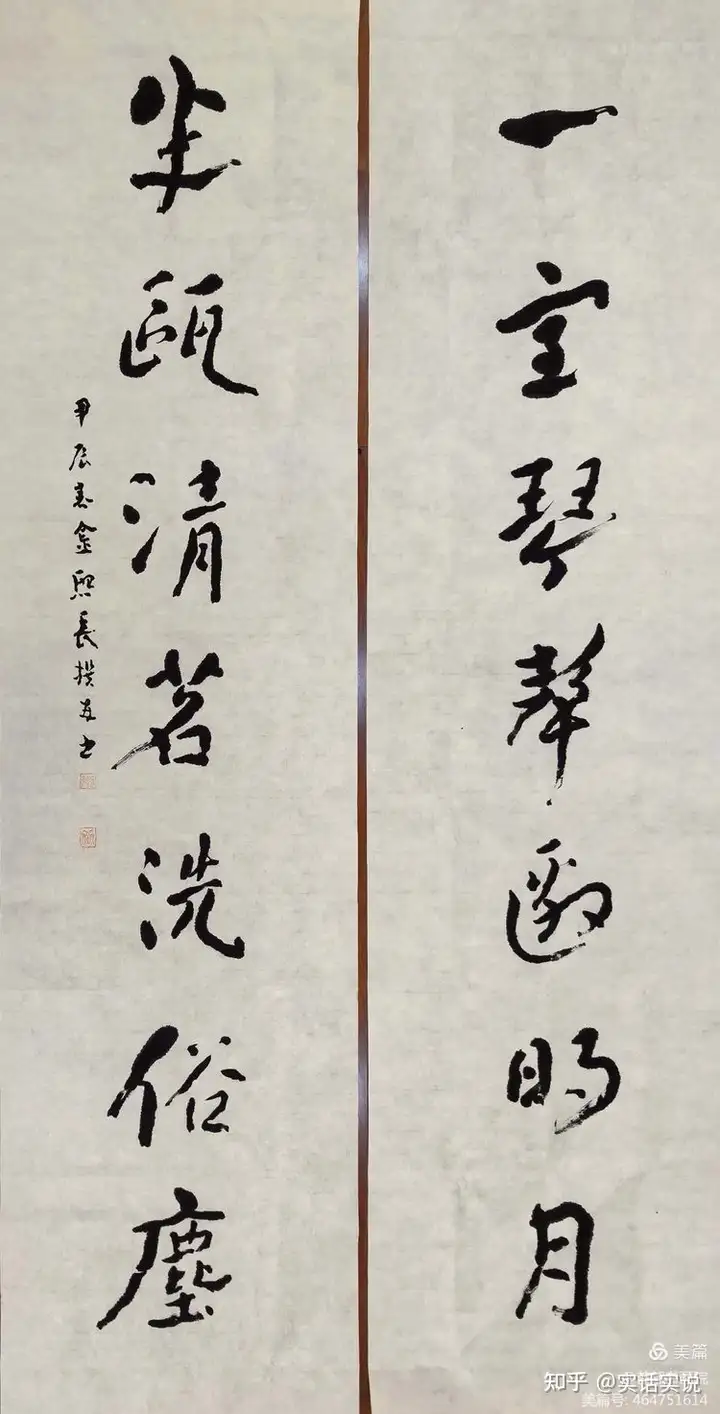 一室琴聲邀明月
半甌清茗洗俗塵
甲辰春金熙長撰并书
美篇
知乎 @实话实说
美篇号: 464751614